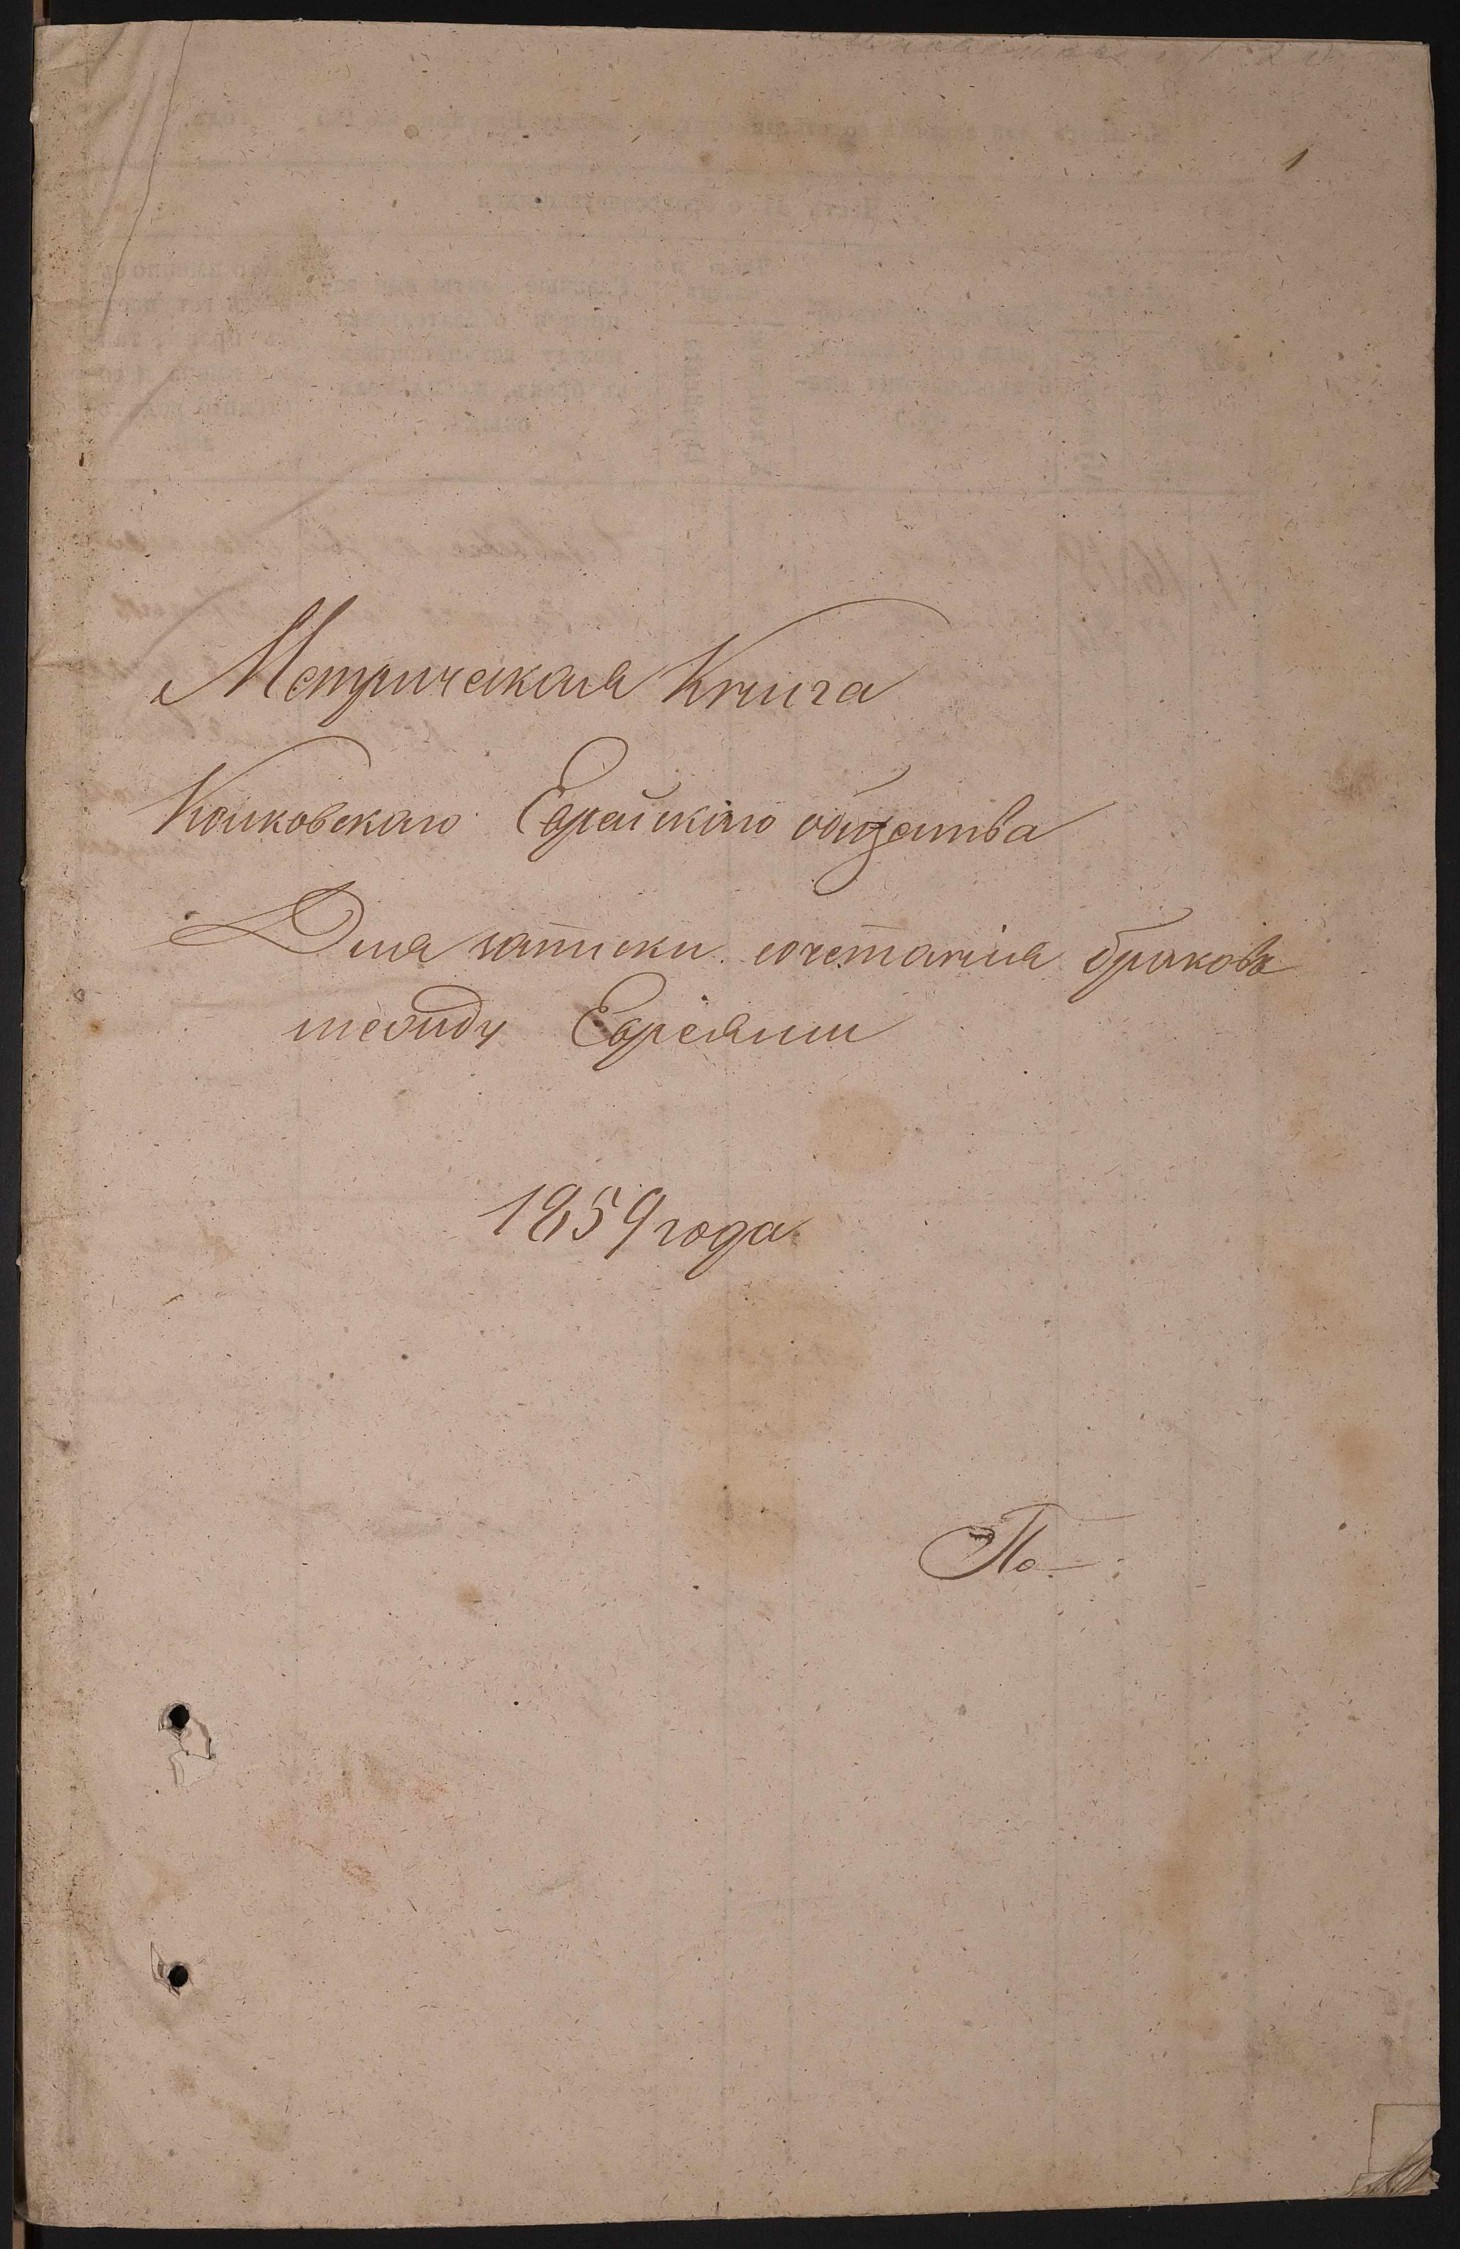 1
Метрическая Книга
Колковскаго Еврейскаго общества
Для записки сочетанія браковъ
между Евреями
1859 года
По